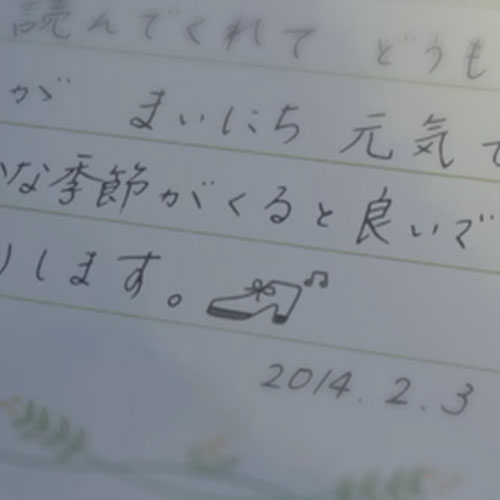 読んでくれて どうも
が まいにち 元気で
な季節がくると良いで
します。
2014.2.3